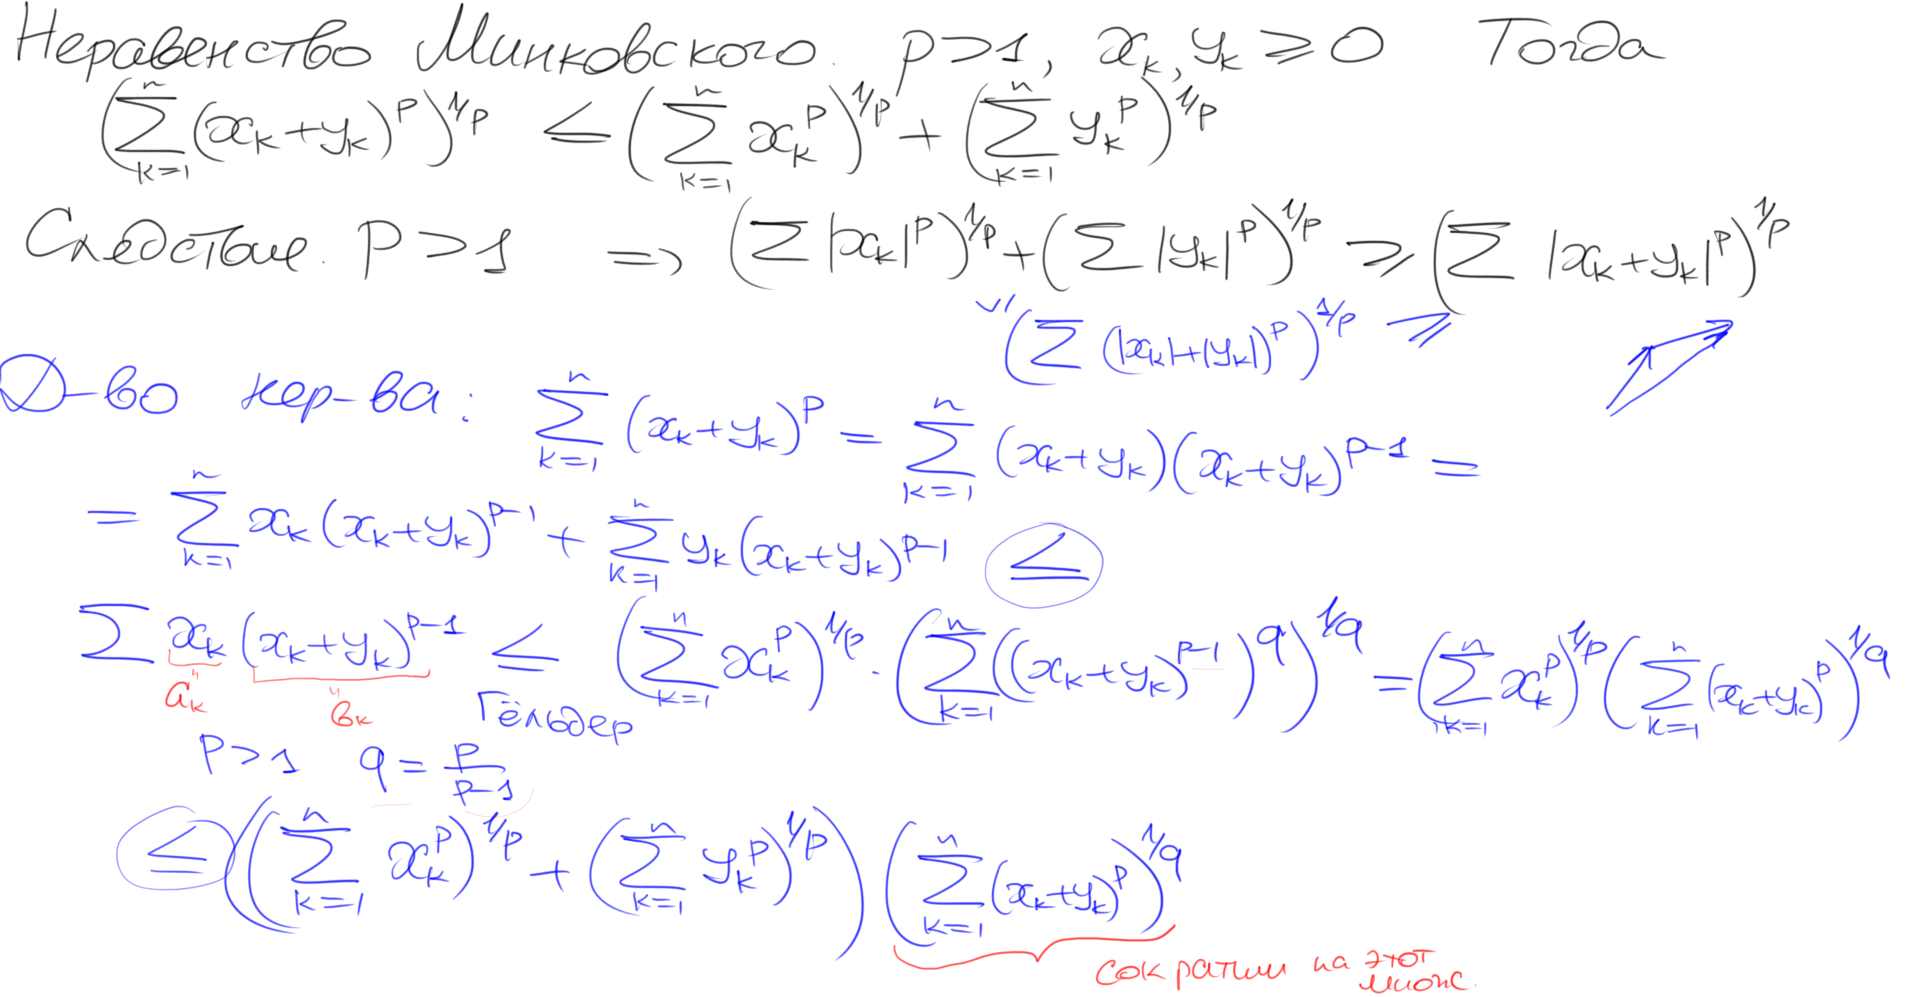 Неравенство Минковского. p>1, x_k, y_k ⩾ 0 Тогда
(∑_{k=1}^{n} (x_k+y_k)^p)^{1/p} ≤ (∑_{k=1}^{n} x_k^p)^{1/p} + (∑_{k=1}^{n} y_k^p)^{1/p}
Следствие. p>1 => (∑ |x_k|^p)^{1/p} + (∑ |y_k|^p)^{1/p} ⩾ (∑ |x_k+y_k|^p)^{1/p}
∨/ (∑ (|x_k|+|y_k|)^p)^{1/p} ⩾
Д-во нер-ва: ∑_{k=1}^{n} (x_k+y_k)^p = ∑_{k=1}^{n} (x_k+y_k)(x_k+y_k)^{p-1} =
= ∑_{k=1}^{n} x_k(x_k+y_k)^{p-1} + ∑_{k=1}^{n} y_k(x_k+y_k)^{p-1} ≤
∑ x_k (x_k+y_k)^{p-1} ≤ (∑_{k=1}^{n} x_k^p)^{1/p} · (∑_{k=1}^{n} ((x_k+y_k)^{p-1})^q)^{1/q} = (∑_{k=1}^{n} x_k^p)^{1/p} (∑_{k=1}^{n} (x_k+y_k)^p)^{1/q}
" a_k " b_k Гёльдер
p>1 q = p/(p-1)
≤ ((∑_{k=1}^{n} x_k^p)^{1/p} + (∑_{k=1}^{n} y_k^p)^{1/p}) (∑_{k=1}^{n} (x_k+y_k)^p)^{1/q}
сократим на этот
множ.